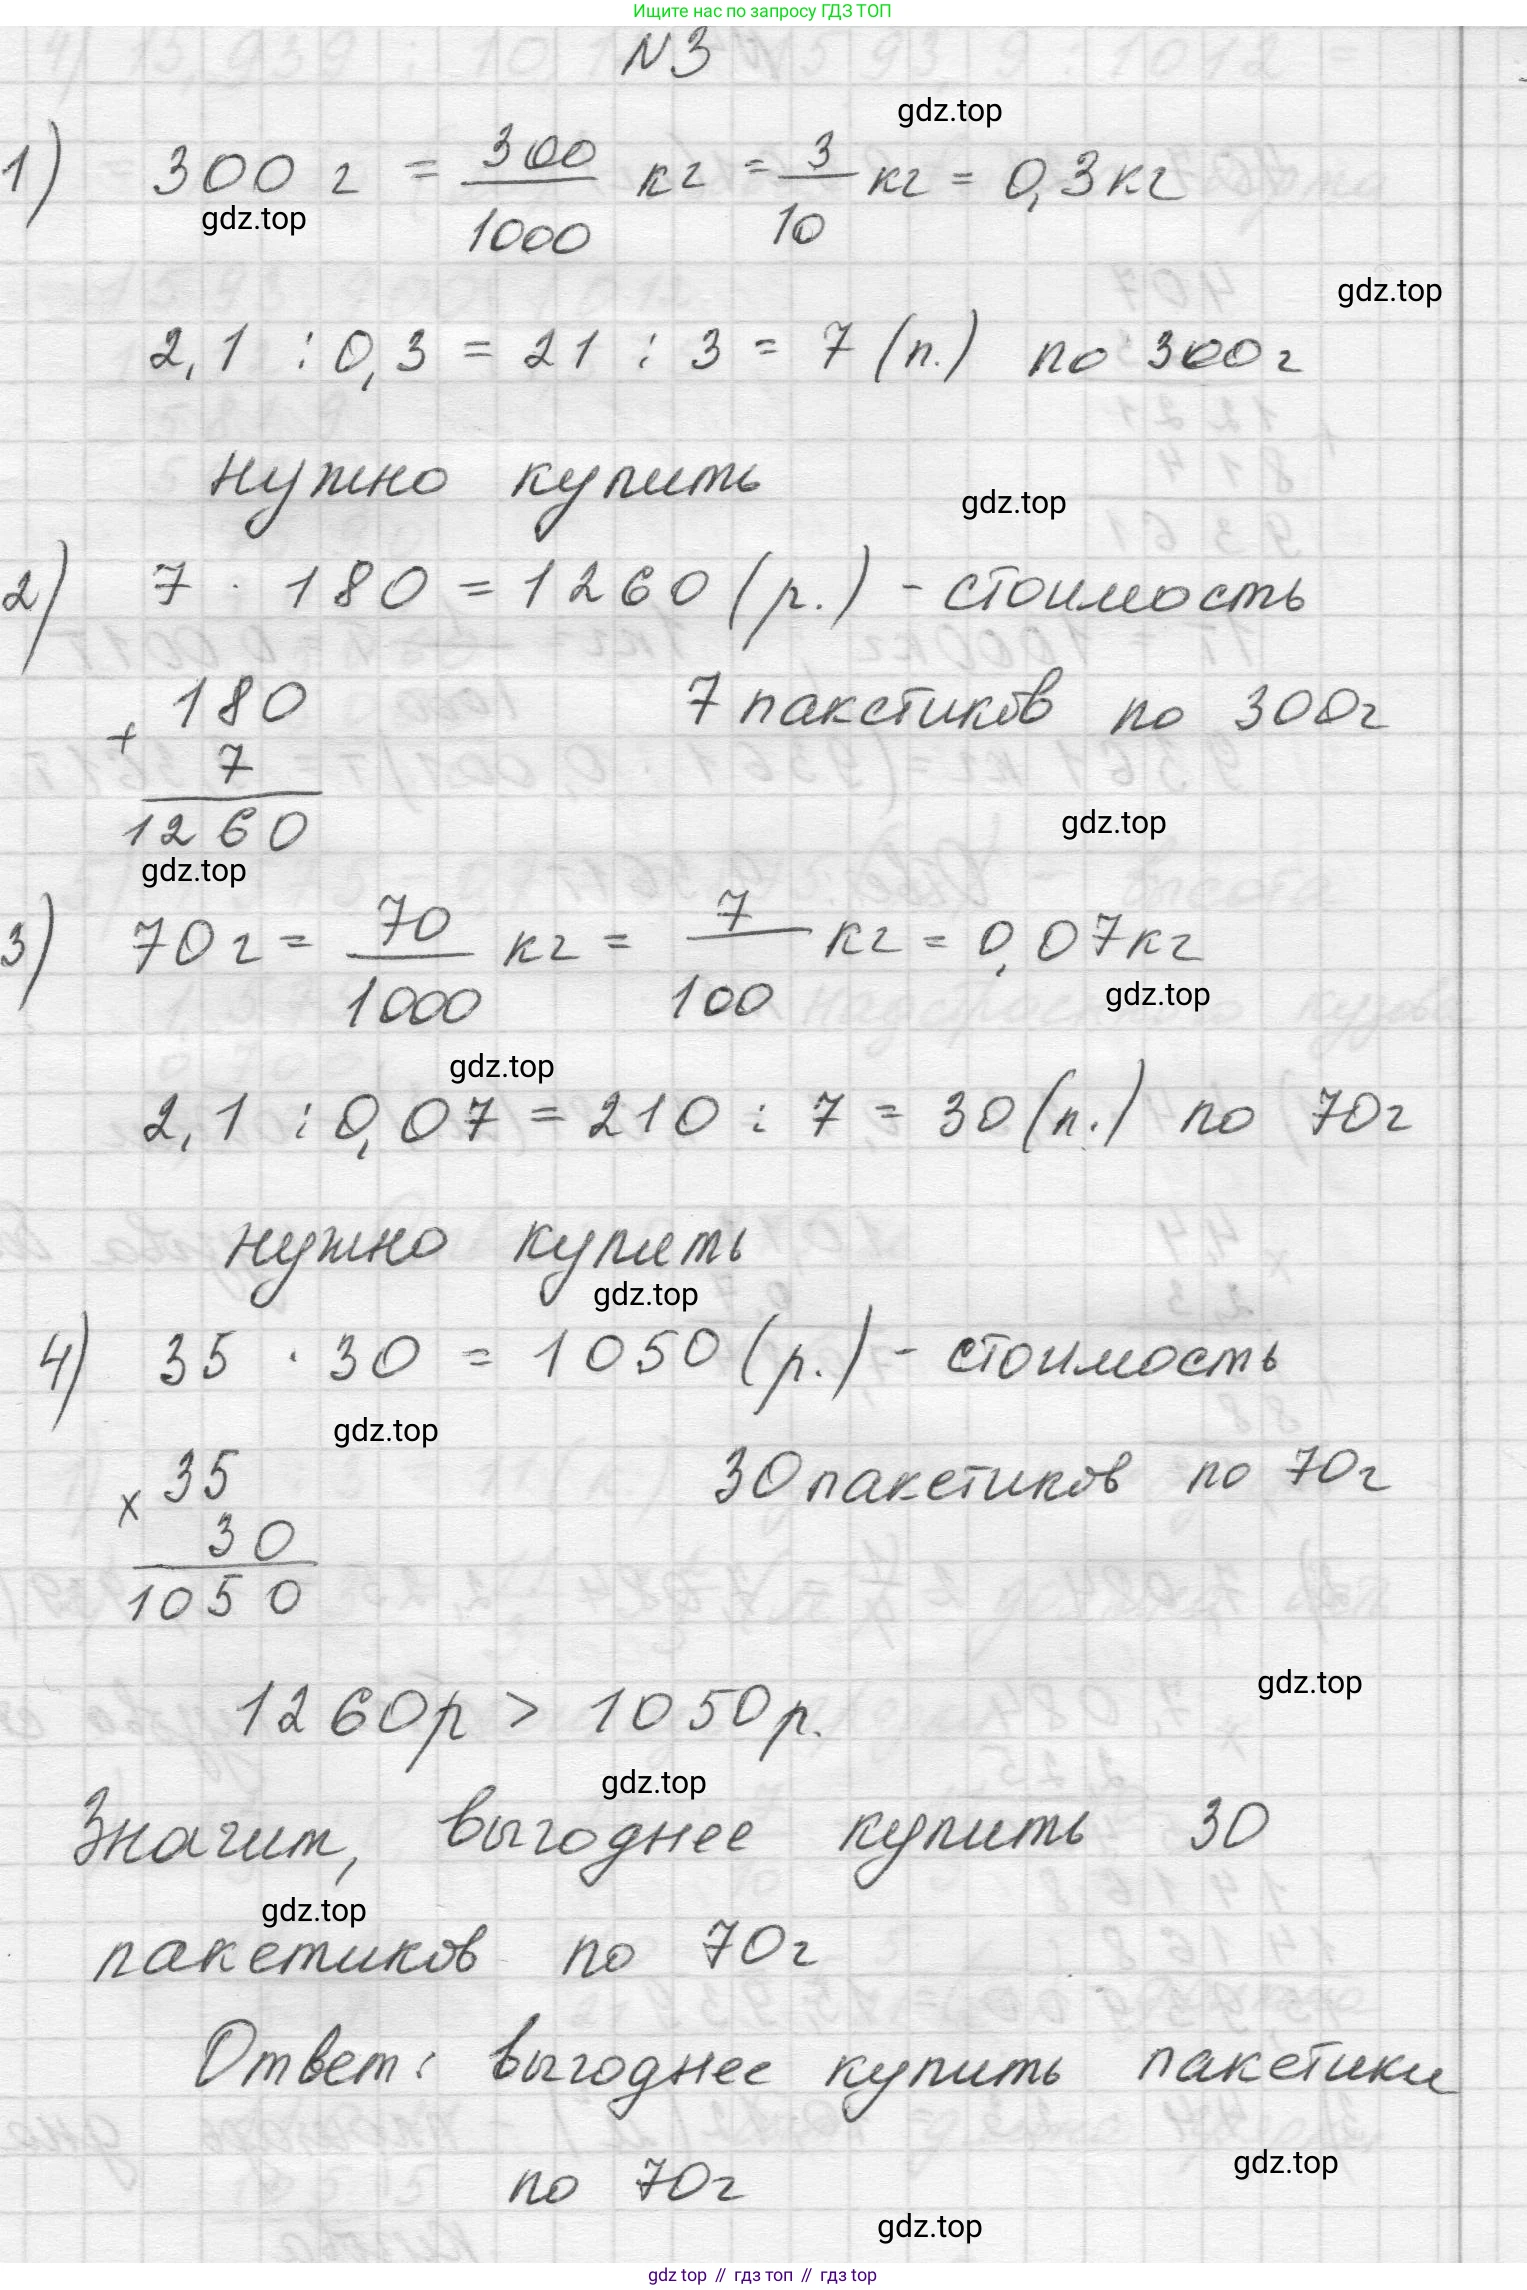 Ищите нас по запросу ГДЗ ТОП
N3
gdz.top
1) 300 г = 300/1000 кг = 3/10 кг = 0,3 кг
gdz.top
gdz.top
2,1 : 0,3 = 21 : 3 = 7 (п.) по 300 г
нужно купить
gdz.top
2) 7 · 180 = 1260 (р.) - стоимость
7 пакетиков по 300 г
+ 180
7
1260
gdz.top
gdz.top
3) 70 г = 70/1000 кг = 7/100 кг = 0,07 кг
gdz.top
gdz.top
2,1 : 0,07 = 210 : 7 = 30 (п.) по 70 г
нужно купить
gdz.top
4) 35 · 30 = 1050 (р.) - стоимость
gdz.top
30 пакетиков по 70 г
x 35
30
1050
gdz.top
1260 р > 1050 р.
gdz.top
Значит, выгоднее купить 30
gdz.top
пакетиков по 70 г
Ответ: выгоднее купить пакетики
gdz.top
по 70 г
gdz.top
gdz top // гдз топ // гдз top